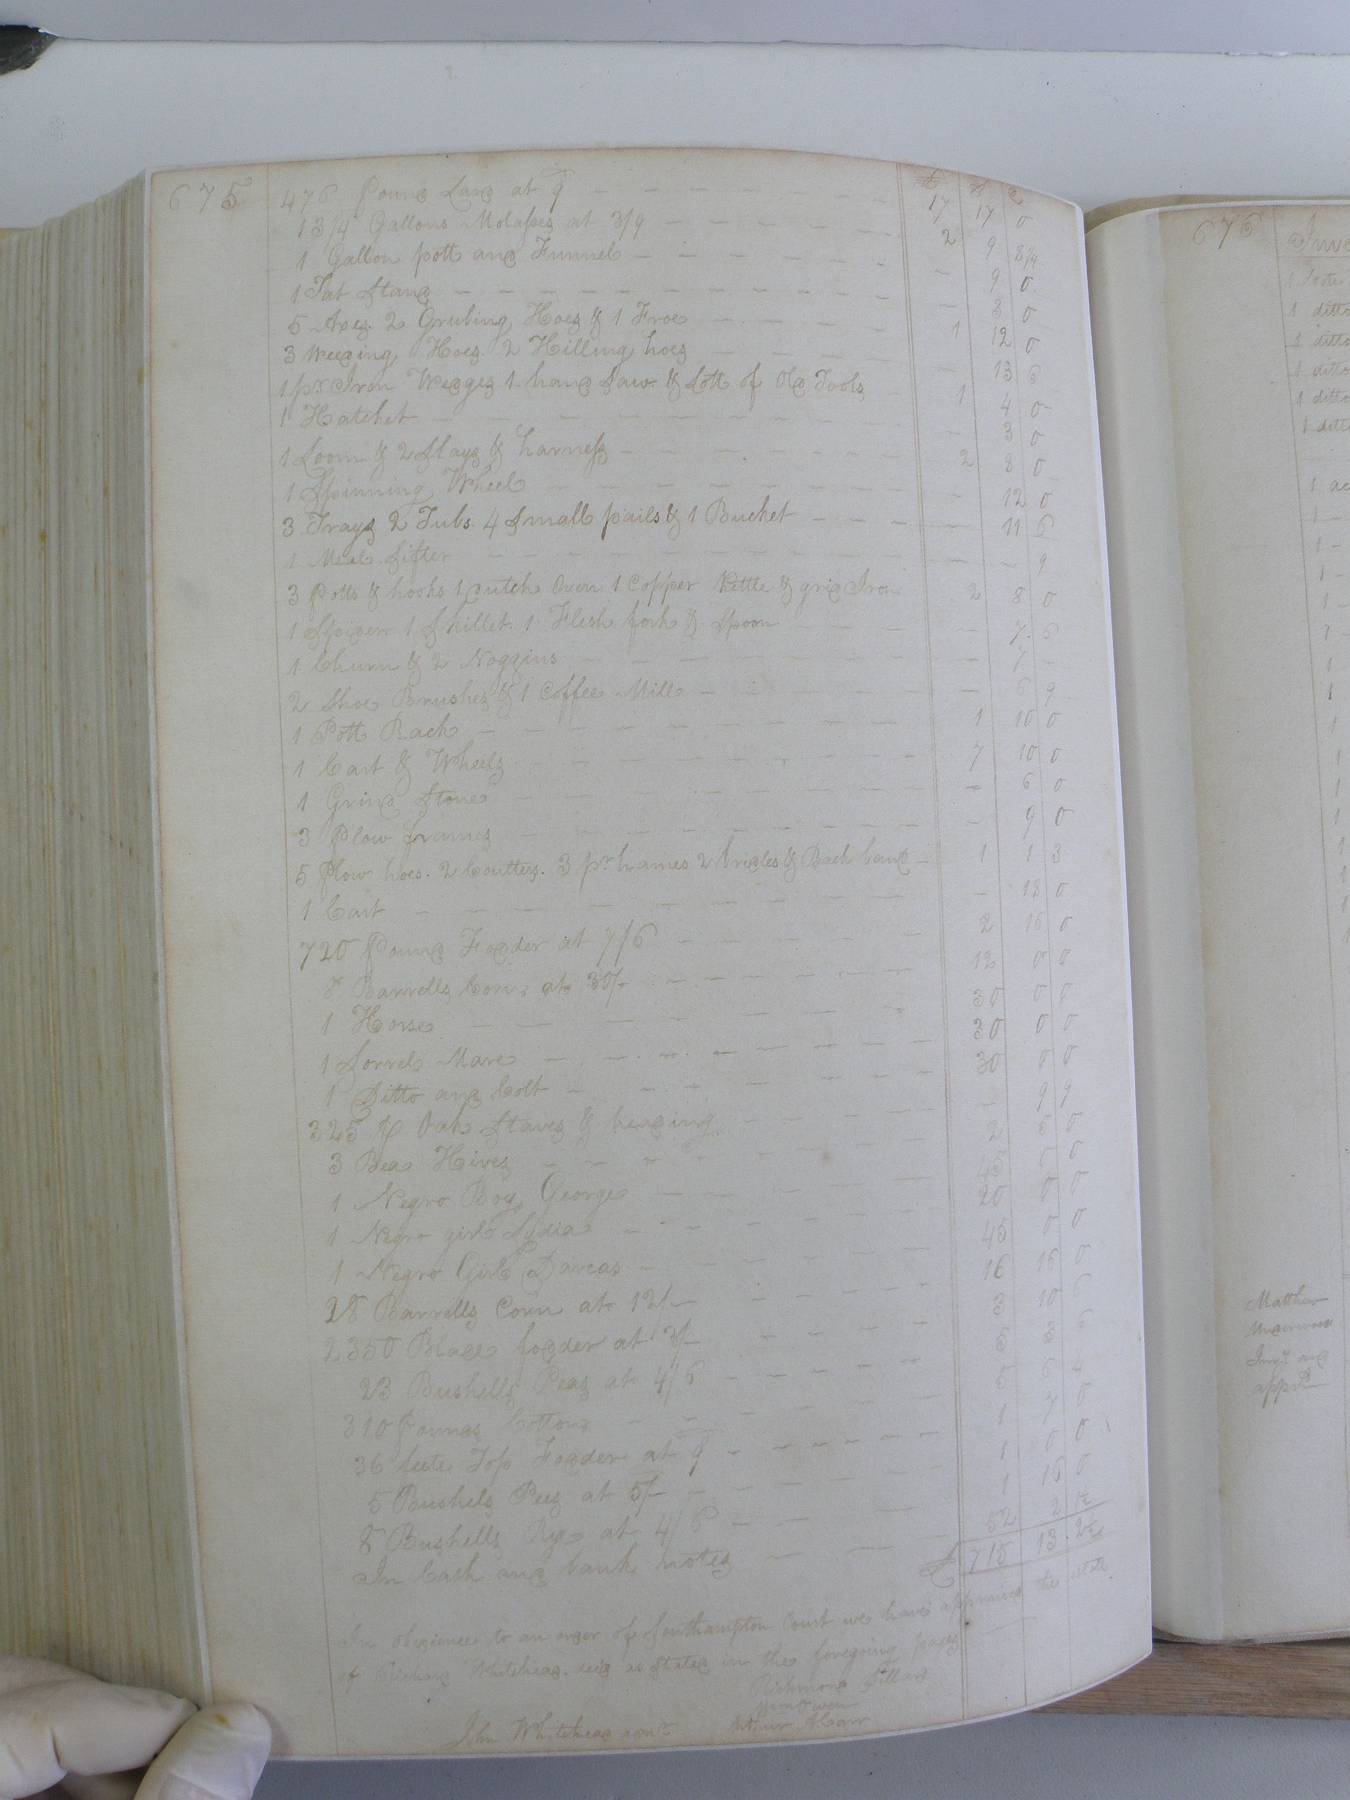 675
£ s d
476 Pound Lard at 9 — 17 17 0
13/4 Gallons Molasses at 3/9 — 2 9 8¼
1 Gallon pott and Funnel — 9 0
1 Fat Stand — 3 0
5 Axes. 2 Grubing Hoes & 1 Froe — 1 12 0
3 Weeding Hoes. 2 Hilling hoes — 13 6
1 pr. Iron Wedges 1 hand Saw & Lott of Old Tools — 1 4 0
1 Hatchet — 3 0
1 Loom & 2 Slays & harness — 2 8 0
1 Spinning Wheel — 12 0
3 Trays 2 Tubs. 4 Small pails & 1 Bucket — 11 6
1 Meal Sifter — 9
3 Potts & hooks 1 Dutch Oven 1 Copper Kettle & grid Iron 2 8 0
1 Spider 1 Skillet. 1 Flesh fork & Spoon — 7 6
1 Churn & 2 Noggins — 7 -
2 Shoe Brushes & 1 Coffee Mill — 6 9
1 Pott Rack — 1 10 0
1 Cart & Wheels 7 10 0
1 Grind Stone — 6 0
3 Plow frames — 9 0
5 Plow hoes. 2 Coulters. 3 pr. hames 2 bridles & Back band — 1 1 3
1 Cart — 18 0
720 Pound Fodder at 7/6 — 2 16 0
8 Barrells Corn, at 30/- 12 0 0
1 Horse — 30 0 0
1 Sorrel Mare — 30 0 0
1 Ditto and Colt — 30 0 0
325 Oak Staves & heading — 9 9
3 Bea Hives — 2 5 0
1 Negro Boy George — 45 0 0
1 Negro girl Lydia — 20 0 0
1 Negro Girl Darcas — 45 0 0
28 Barrells Corn at 12/- 16 16 0
2350 Blade fodder at 3/- 3 10 6
23 Bushells Peas at 4/6 — 5 3 6
310 Pounds Cotton — 5 6
36 feete Top Fodder at 9 — 1 7 0
5 Bushels Peas at 5/- 1 0
8 Bushells Rye at 4/6 — 1 16 0
In Cash and bank notes — 52 2
£ 715 13 2½
In obedience to an order of Southampton Court we have appraised the estate
of Richard Whitehead decd as stated in the foregoing pages
Richmond
Arthur A Carr
John Whitehead
676
1 ditto
1 ditto
1 ditto
1 ditto
1 ditto
Matthew
Underwood
Invy. and
appt.